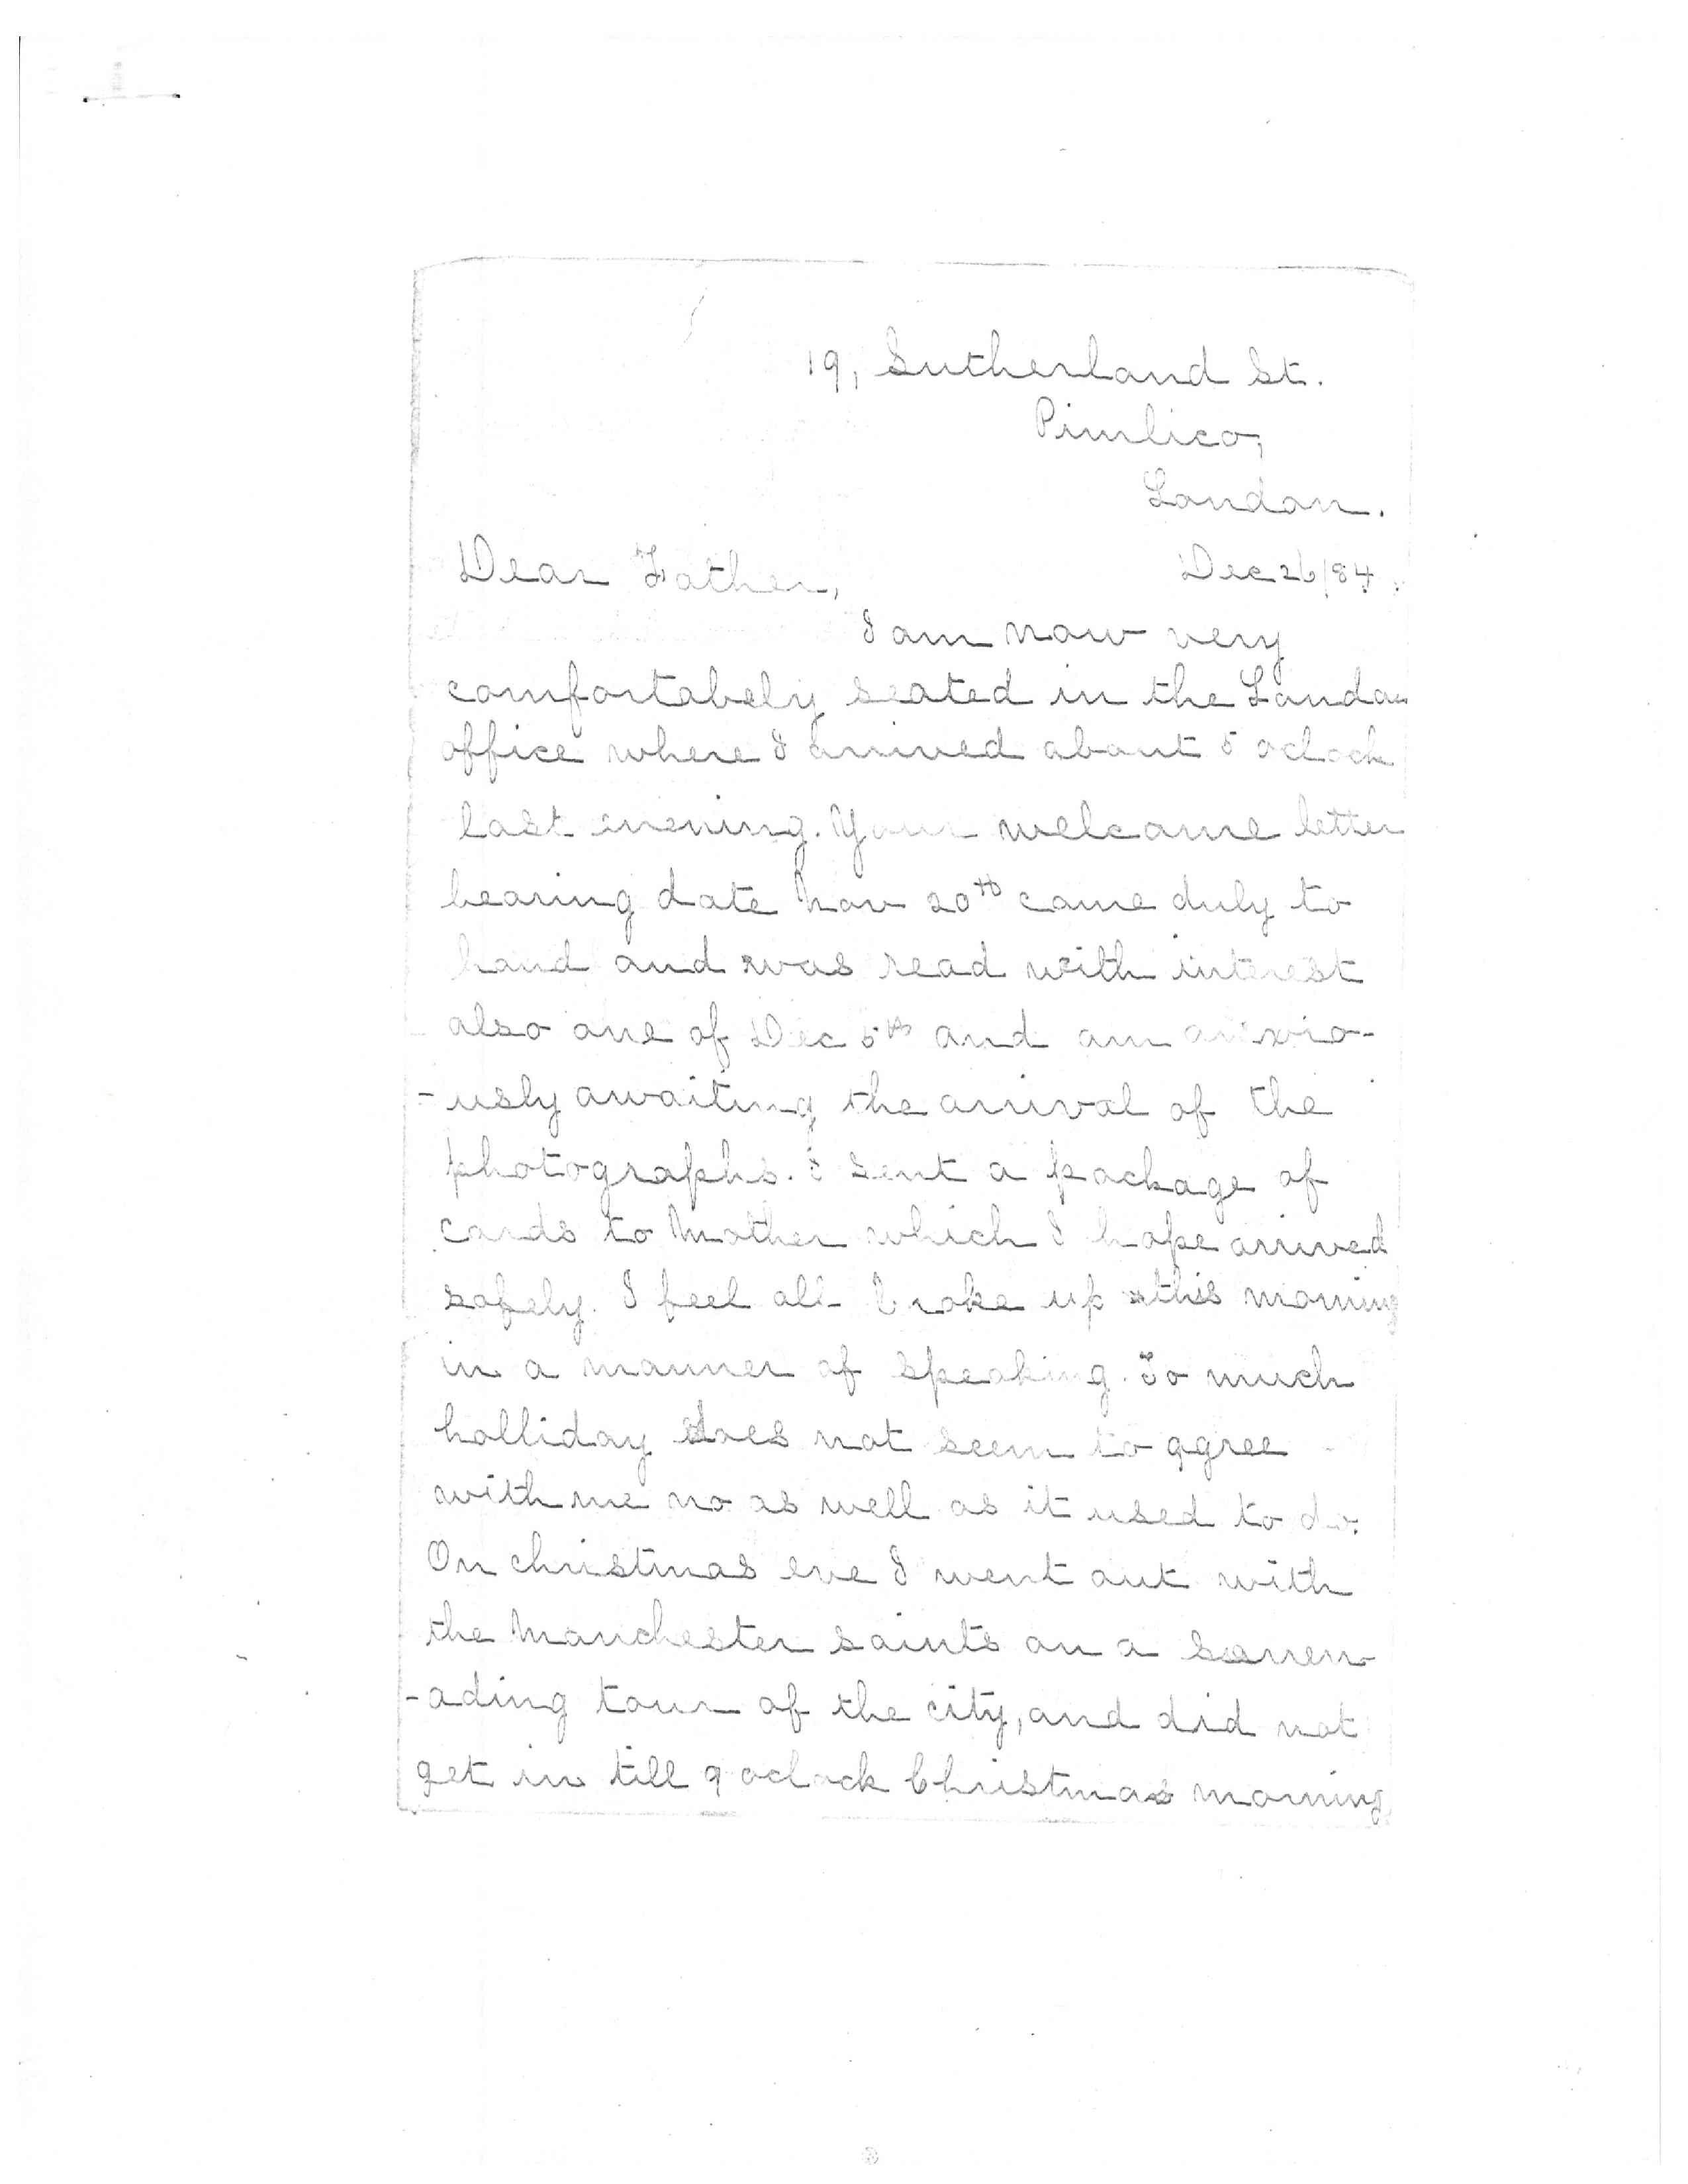 19, Sutherland St.
Pimlico,
London.
Dear Father, Dec 26/84.
I am now very
comfortabely seated in the London
office where I arrived about 5 oclock
last evening. Your welcome letter
bearing date Nov 20th came duly to
hand and was read with interest
also one of Dec 5th and am anxio-
-usly awaiting the arrival of the
photographs. I sent a package of
cards to Mother which I hope arrived
safely. I feel all broke up this morning
in a manner of speaking. To much
holliday does not seem to agree
with me no as well as it used to do.
On christmas eve I went out with
the Manchester saints on a seren-
-ading tour of the city, and did not
get in till 9 oclock Christmas morning